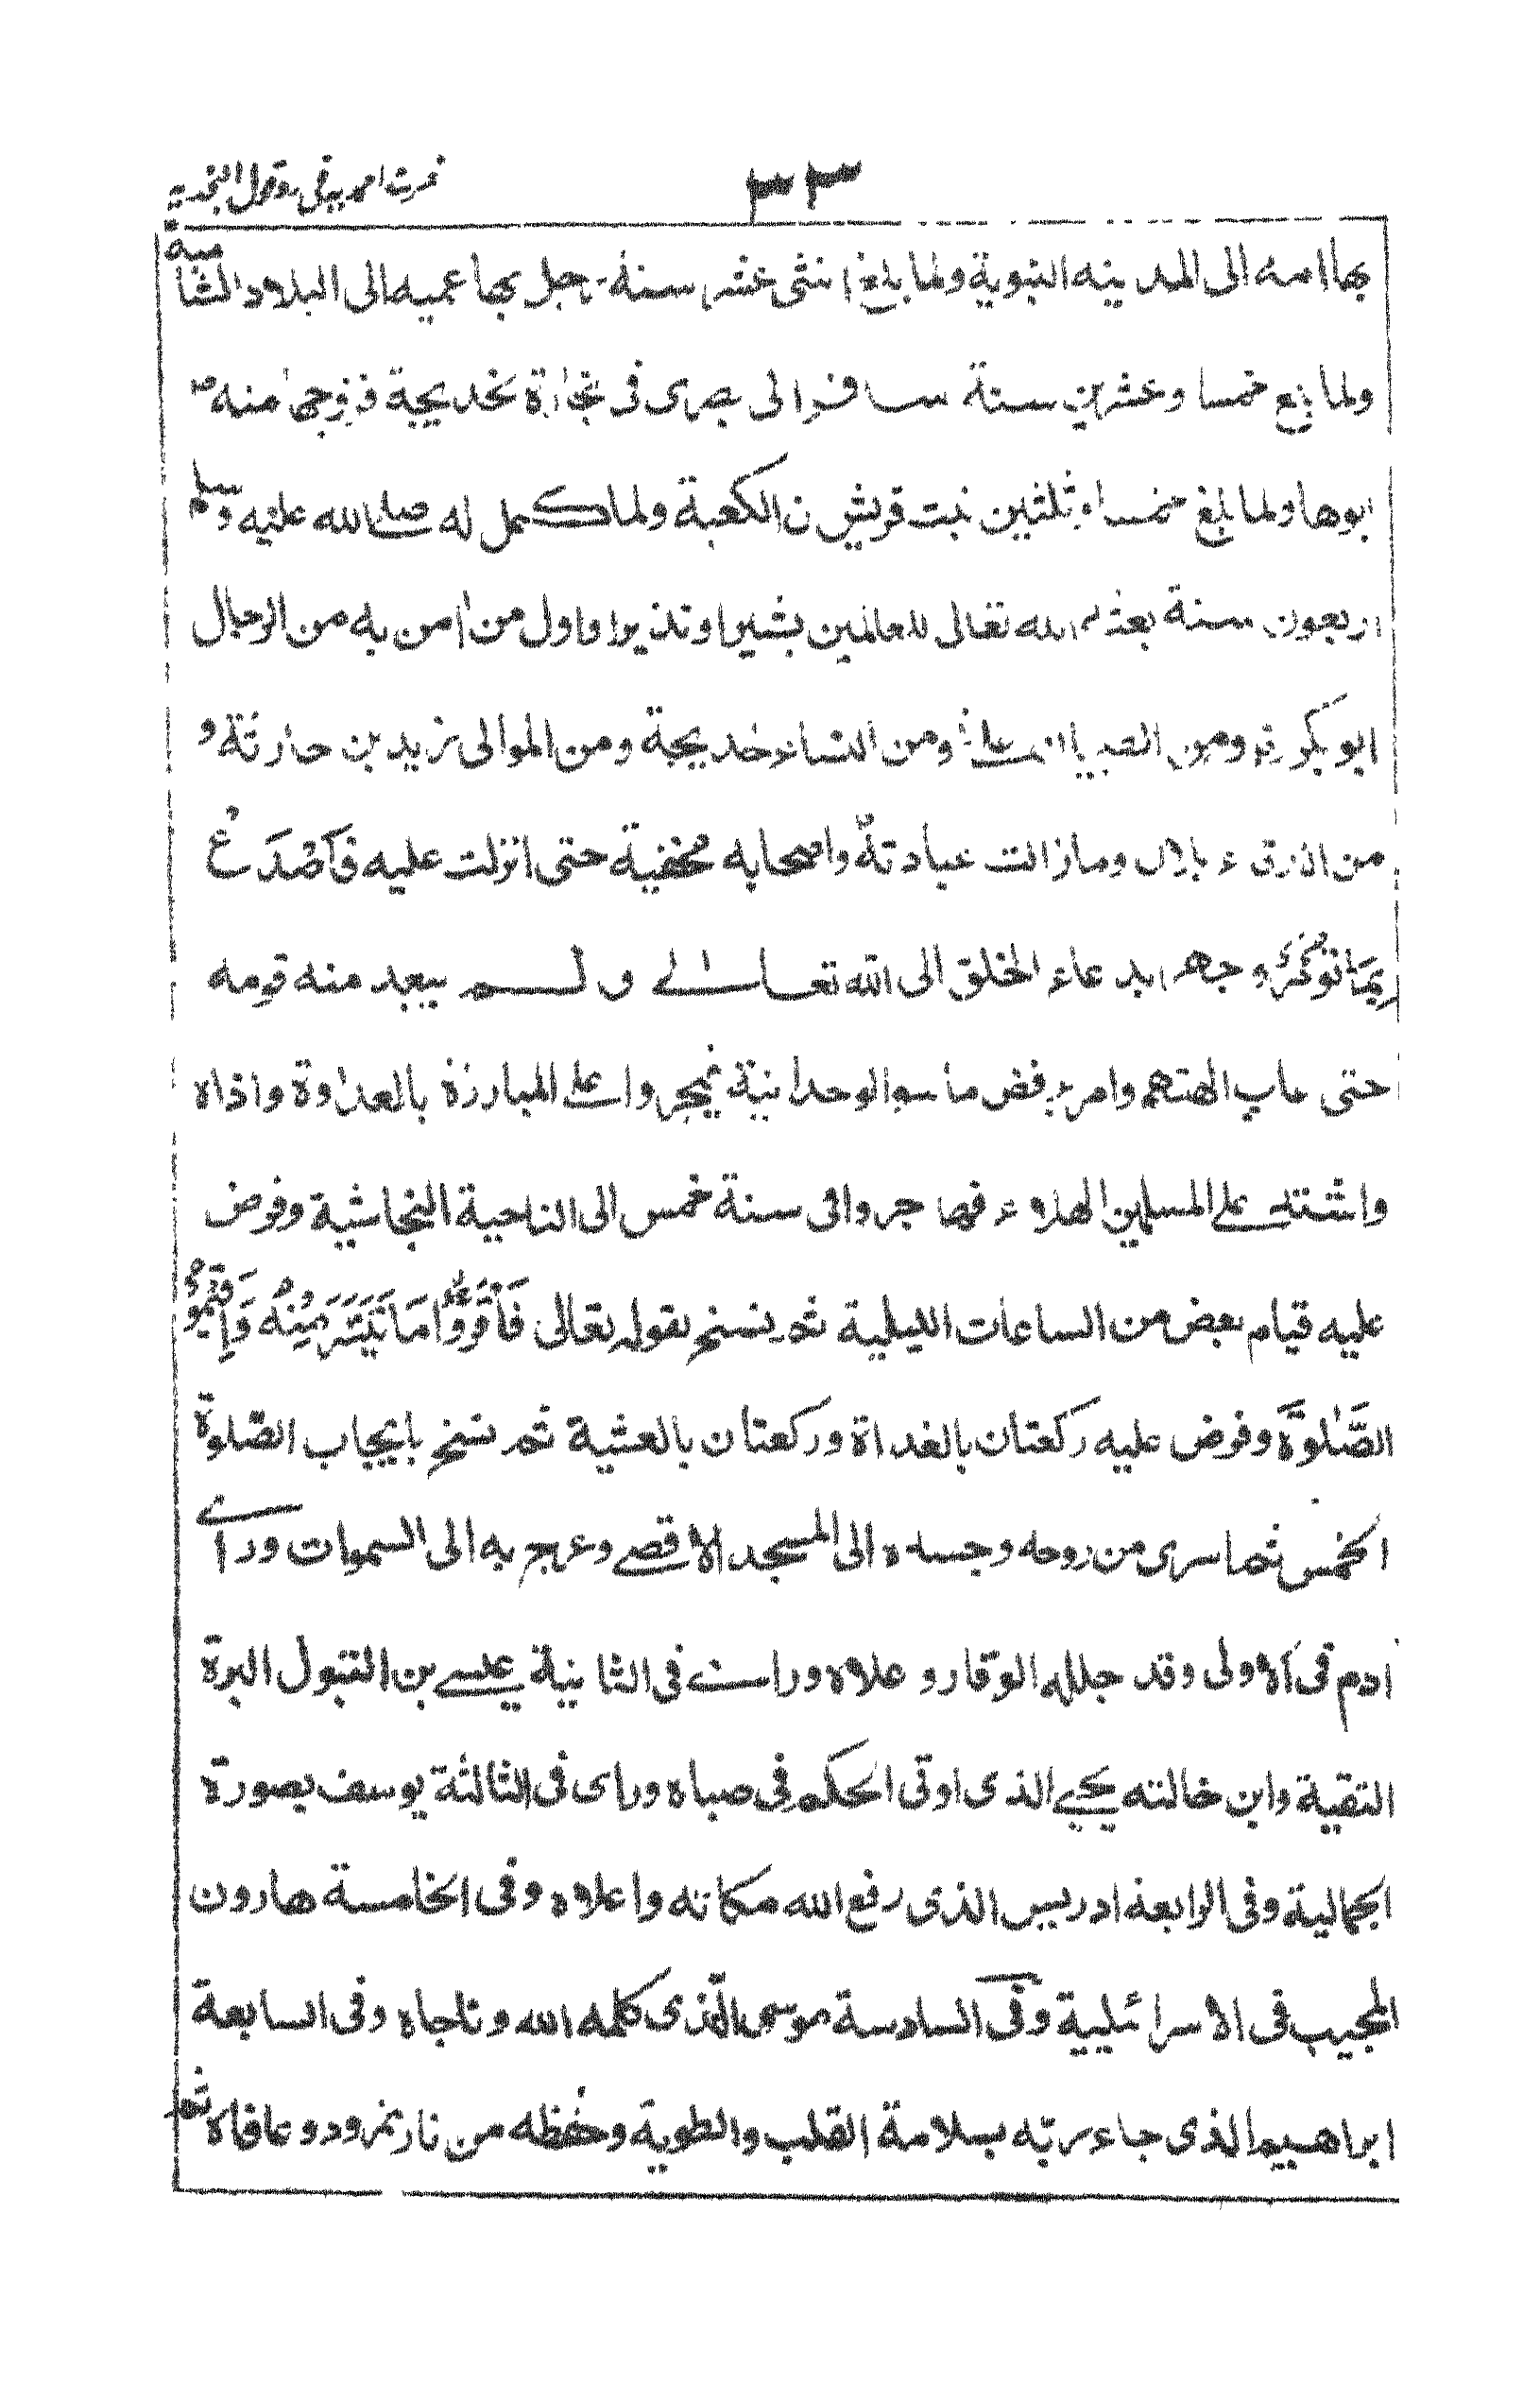 ٣٣
بها امه الى المدينه النبوية ولما بلغ اثنتى عشر سنة رحل بها عميه الى البلاد الشامية
ولما بلغ خمسا وعشرين سنة سافر الى بصرى فى تجارة تخديجة فزوجها منه
ابوها ولما بلغ خمسا وثلثين بنت قريش ن الكعبة ولما كمل له صلى الله عليه وسلم
اربعون سنة بعثه الله تعالى للعالمين بشيرا ونذيرا واول من امن به من الرجال
ابو بكر ومن الصبيان على ومن النساء خديجة ومن الموالى زيد بن حارثة و
من الارقاء بلال ومازالت عبادتة واصحابه مخفية حتى انزلت عليه فَاصْدَعْ
بِمَا تُؤْمَرُ وجهر ابدعاء الخلق الى الله تعالى ولم يبعد منه قومه
حتى عاب الهتهم وامر برفض ما سوا الوحدانية فتجروا على المبارزة بالعداوة واذاه
واشتد على المسلمين البلاء فهاجروا فى سنة خمس الى الناحية النجاشية وفرض
عليه قيام بعض من الساعات الليلية ثم نسخ بقوله تعالى فَاقْرَؤُا مَا تَيَسَّرَ مِنْهُ وَاَقِيْمُوا
الصَّلٰوةَ وفرض عليه ركعتان بالغداة وركعتان بالعشية ثم نسخ بايجاب الصّلوة
الخمس ثم اسرى من روحه وجسده الى المسجد الاقصے وعرج به الى السموات وراے
ادم فى الاولى وقد جلله الوقار وعلاه وراے فى الثانية عيسے بن البتول البرة
التقية وابن خالته يحيے الذى اوتى الحكم فى صباه وراى فى الثالثة يوسف بصورة
الجمالية وفى الرابعة ادريس الذى رفع الله مكانه واعلاه وفى الخامسة هارون
المجيب فى الاسرائيلية وفى السادسة موسى الذى كلمه الله وناجاه وفى السابعة
ابراهيم الذى جاء ربّه بسلامة القلب والطوية وحفظه من نار نمرود وعافاه ثم